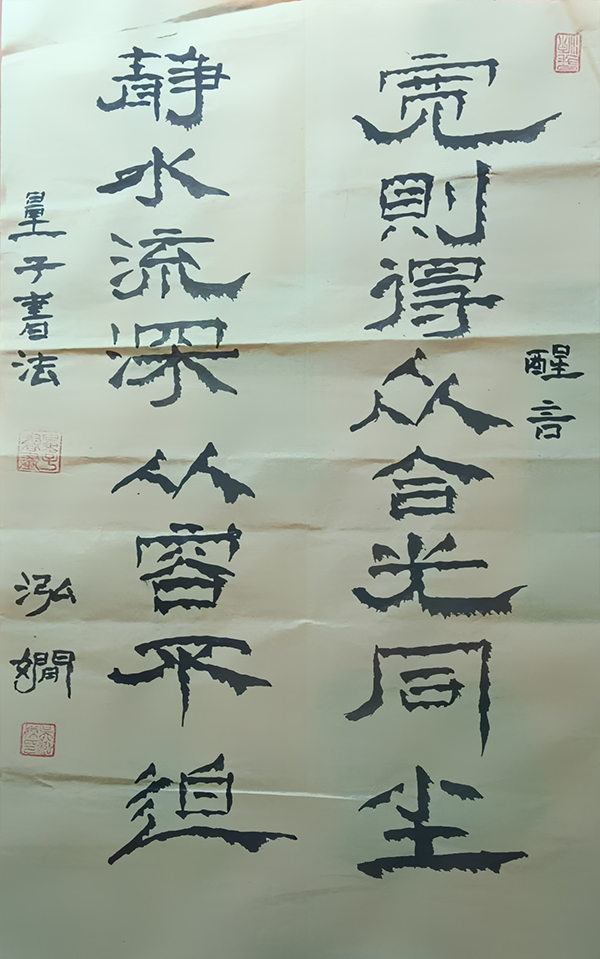 醒言
宽則得众合光同尘
靜水流深从容不迫
量子書法
泓嫻